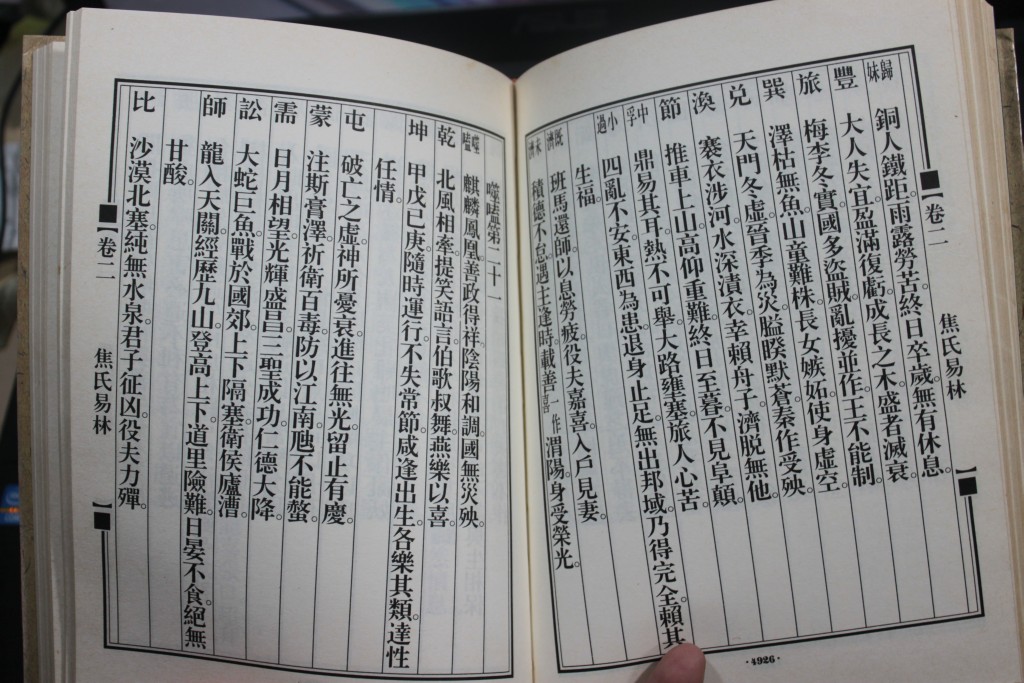 歸妹 銅人鐵距。雨露勞苦。終日卒歲。無有休息。
豐 大人失宜。盈滿復虧。成長之木。盛者滅衰。
旅 梅李冬實。國多盜賊。亂擾並作。王不能制。
巽 澤枯無魚。山童難株。長女嫉妬。使身虛空。
兌 天門冬虛。晉季為災。膉睽默蒼。秦作受殃。
渙 褰衣涉河。水深漬衣。幸賴舟子。濟脱無他。
節 推車上山。高仰重難。終日至暮。不見阜顛。
中孚 鼎易其耳。熱不可舉。大路壅塞。旅人心苦。
小過 四亂不安。東西為患。退身止足。無出邦域。乃得完全。賴其
生福。
既濟 班馬還師。以息勞疲。役夫嘉喜。入戶見妻。
未濟 積德不怠。遇主逢時。載善一作喜渭陽。身受榮光。
卷二
焦氏易林
·4926·
噬嗑第二十一
噬嗑 麒麟鳳凰。善政得祥。陰陽和調。國無災殃。
乾 北風相牽。提笑語言。伯歌叔舞。燕樂以喜。
坤 甲戊已庚。隨時運行。不失常節。咸逢出生。各樂其類。達性
任情。
屯 破亡之虛。神所憂衰。進往無光。留止有慶。
蒙 注斯膏澤。祈衛百毒。防以江南。虺不能螫。
需 日月相望。光輝盛昌。三聖成功。仁德大降。
訟 大蛇巨魚。戰於國郊。上下隔塞。衛侯廬漕。
師 龍入天關。經歷九山。登高上下。道里險難。日晏不食。絕無
甘酸。
比 沙漠北塞。純無水泉。君子征凶。役夫力殫。
卷二
焦氏易林